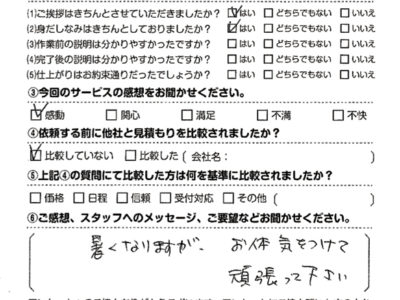 (1)ご挨拶はきちんとさせていただきましたか? □はい □どちらでもない □いいえ
(2)身だしなみはきちんとしておりましたか? □はい □どちらでもない □いいえ
(3)作業前の説明は分かりやすかったですか? □はい □どちらでもない □いいえ
(4)完了後の説明は分かりやすかったですか? □はい □どちらでもない □いいえ
(5)仕上がりはお約束通りだったでしょうか? □はい □どちらでもない □いいえ
③今回のサービスの感想をお聞かせください。
□感動 □関心 □満足 □不満 □不快
④依頼する前に他社と見積もりを比較されましたか?
□比較していない □比較した(会社名: )
⑤上記④の質問にて比較した方は何を基準に比較されましたか?
□価格 □日程 □信頼 □受付対応 □その他( )
⑥ご感想、スタッフへのメッセージ、ご要望などお聞かせください。
暑くなりますが、お体気をつけて
頑張って下さい